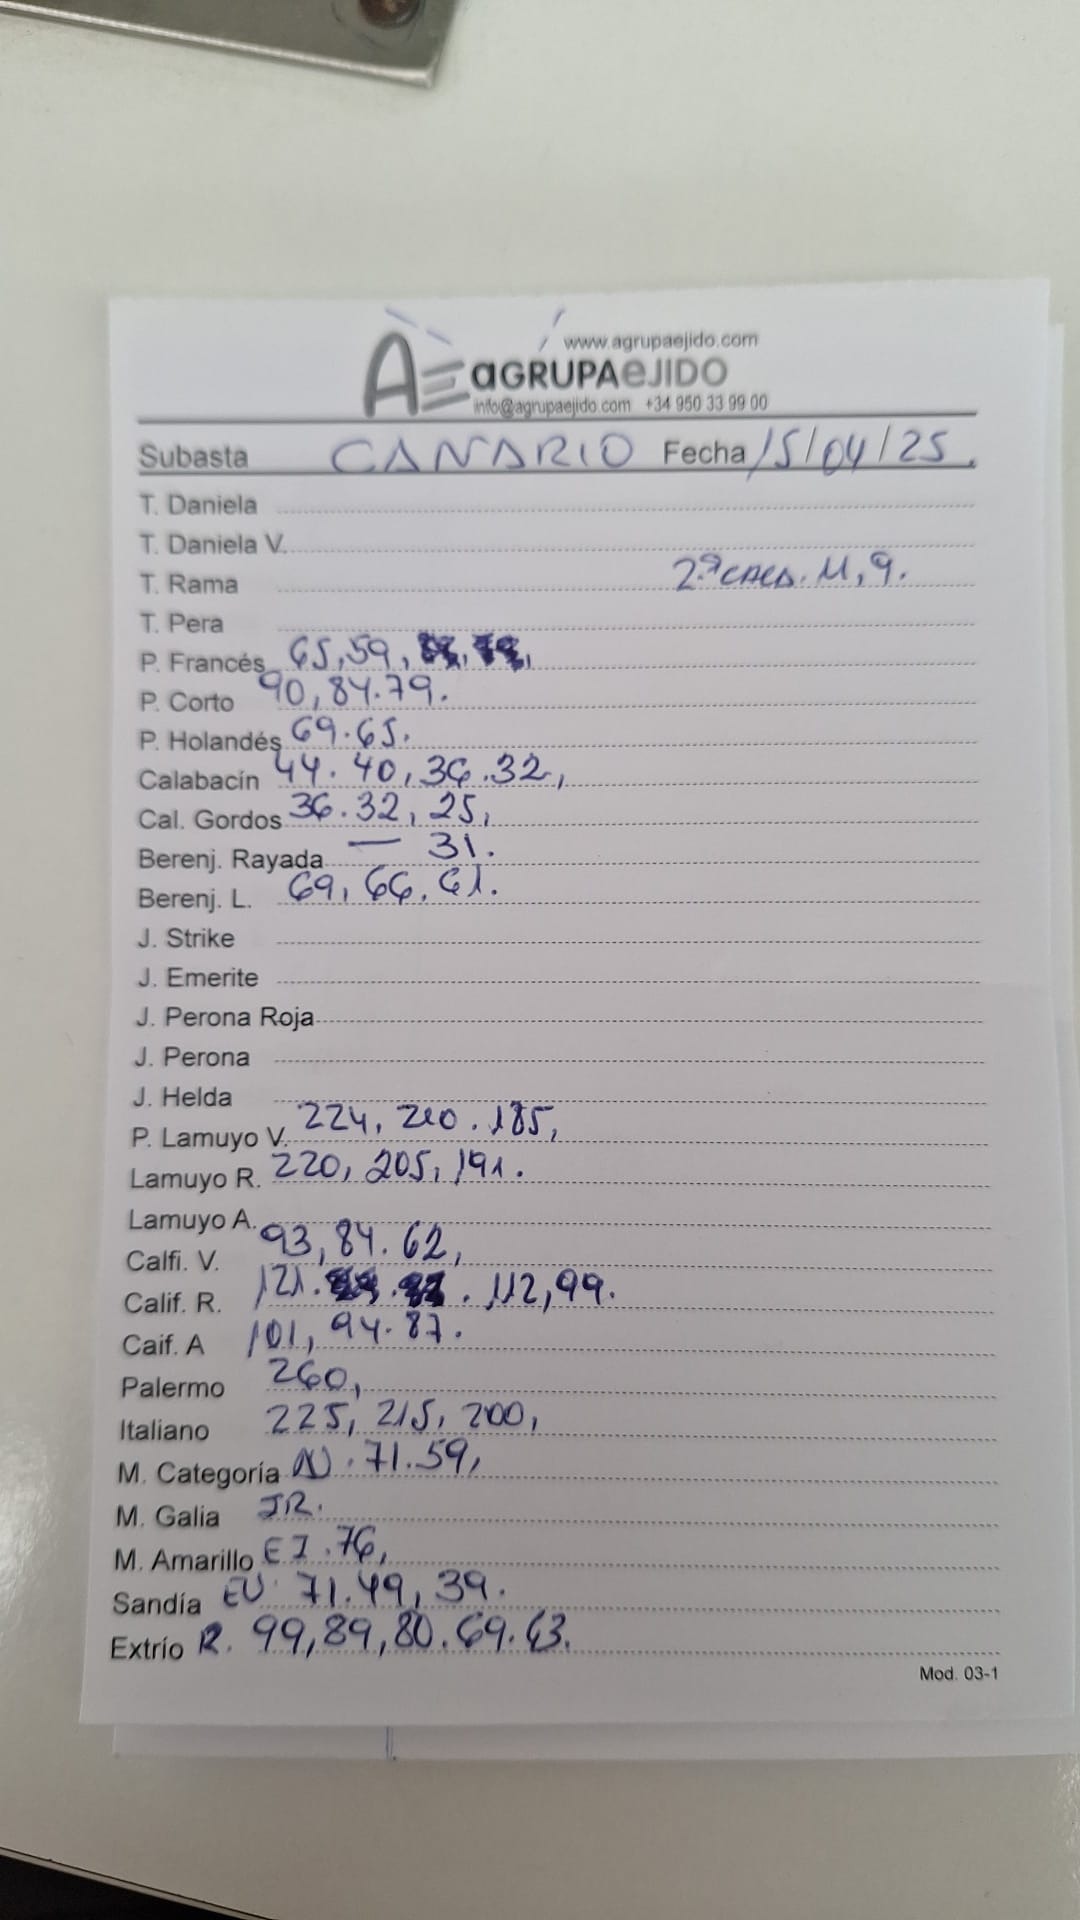 www.agrupaejido.com
AGRUPAEJIDO
info@agrupaejido.com +34 950 33 99 00
Subasta CANARIO Fecha 15/04/25.
T. Daniela
T. Daniela V.
T. Rama 2ª M, 9.
T. Pera
P. Francés 65, 59,
P. Corto 90, 84. 79.
P. Holandés 69. 65.
Calabacín 44. 40, 36. 32,
Cal. Gordos 36. 32, 25,
Berenj. Rayada — 31.
Berenj. L. 69, 66. 61.
J. Strike
J. Emerite
J. Perona Roja
J. Perona
J. Helda
P. Lamuyo V. 224, 210. 185,
Lamuyo R. 220, 205, 191.
Lamuyo A.
Calfi. V. 93, 84. 62,
Calif. R. 121. 112, 99.
Caif. A 101, 94. 87.
Palermo 260,
Italiano 225, 215, 200,
M. Categoría N. 71. 59,
M. Galia JR.
M. Amarillo EJ. 76,
Sandía EU 71. 49, 39.
Extrío R. 99, 89, 80. 69. 63.
Mod. 03-1